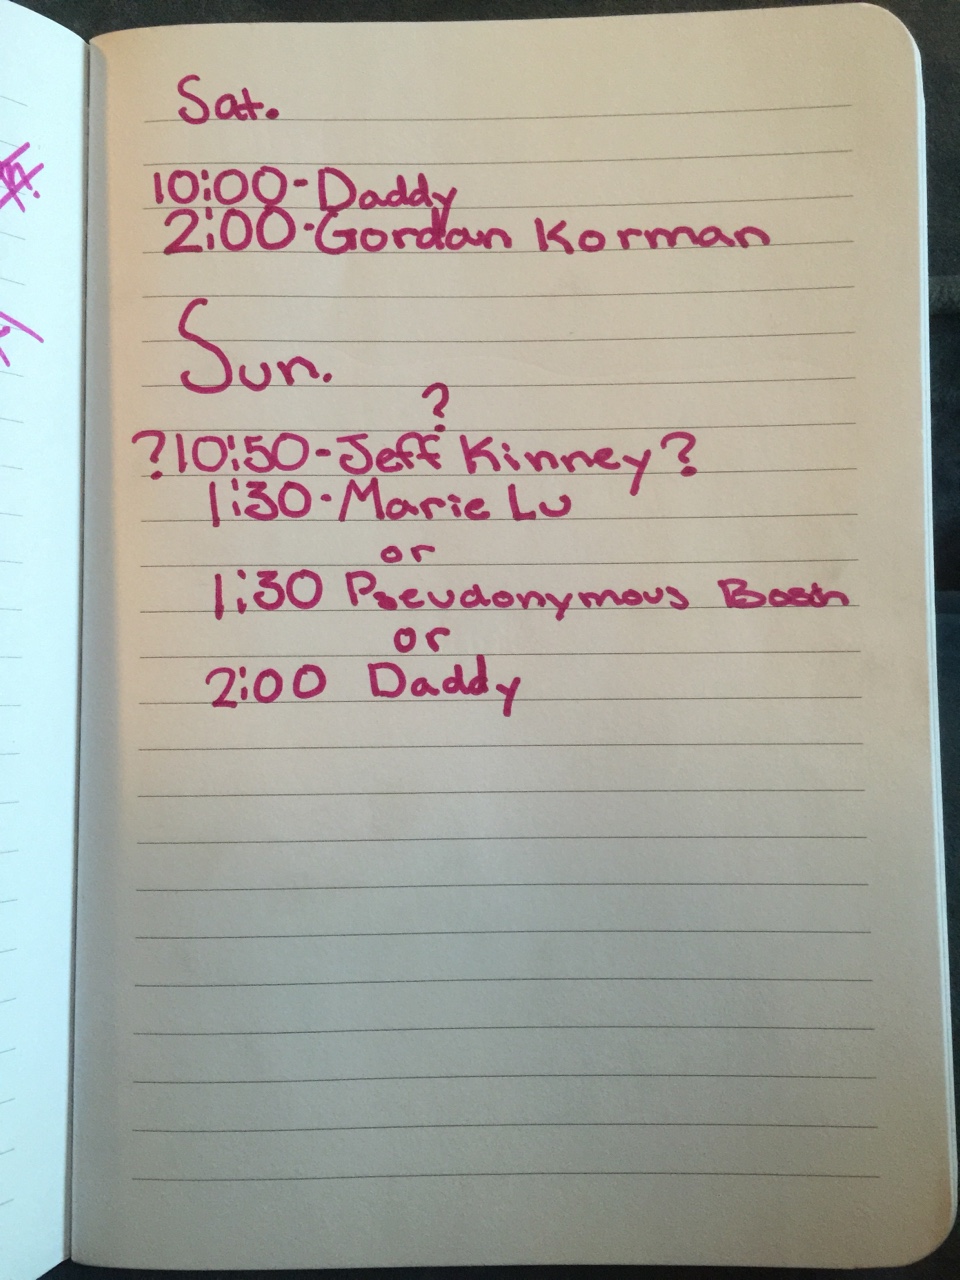 Sat.
10:00-Daddy
2:00-Gordan Korman
Sun.
?
?10:50-Jeff Kinney?
1:30-Marie Lu
or
1:30 Pseudonymous
or
2:00 Daddy